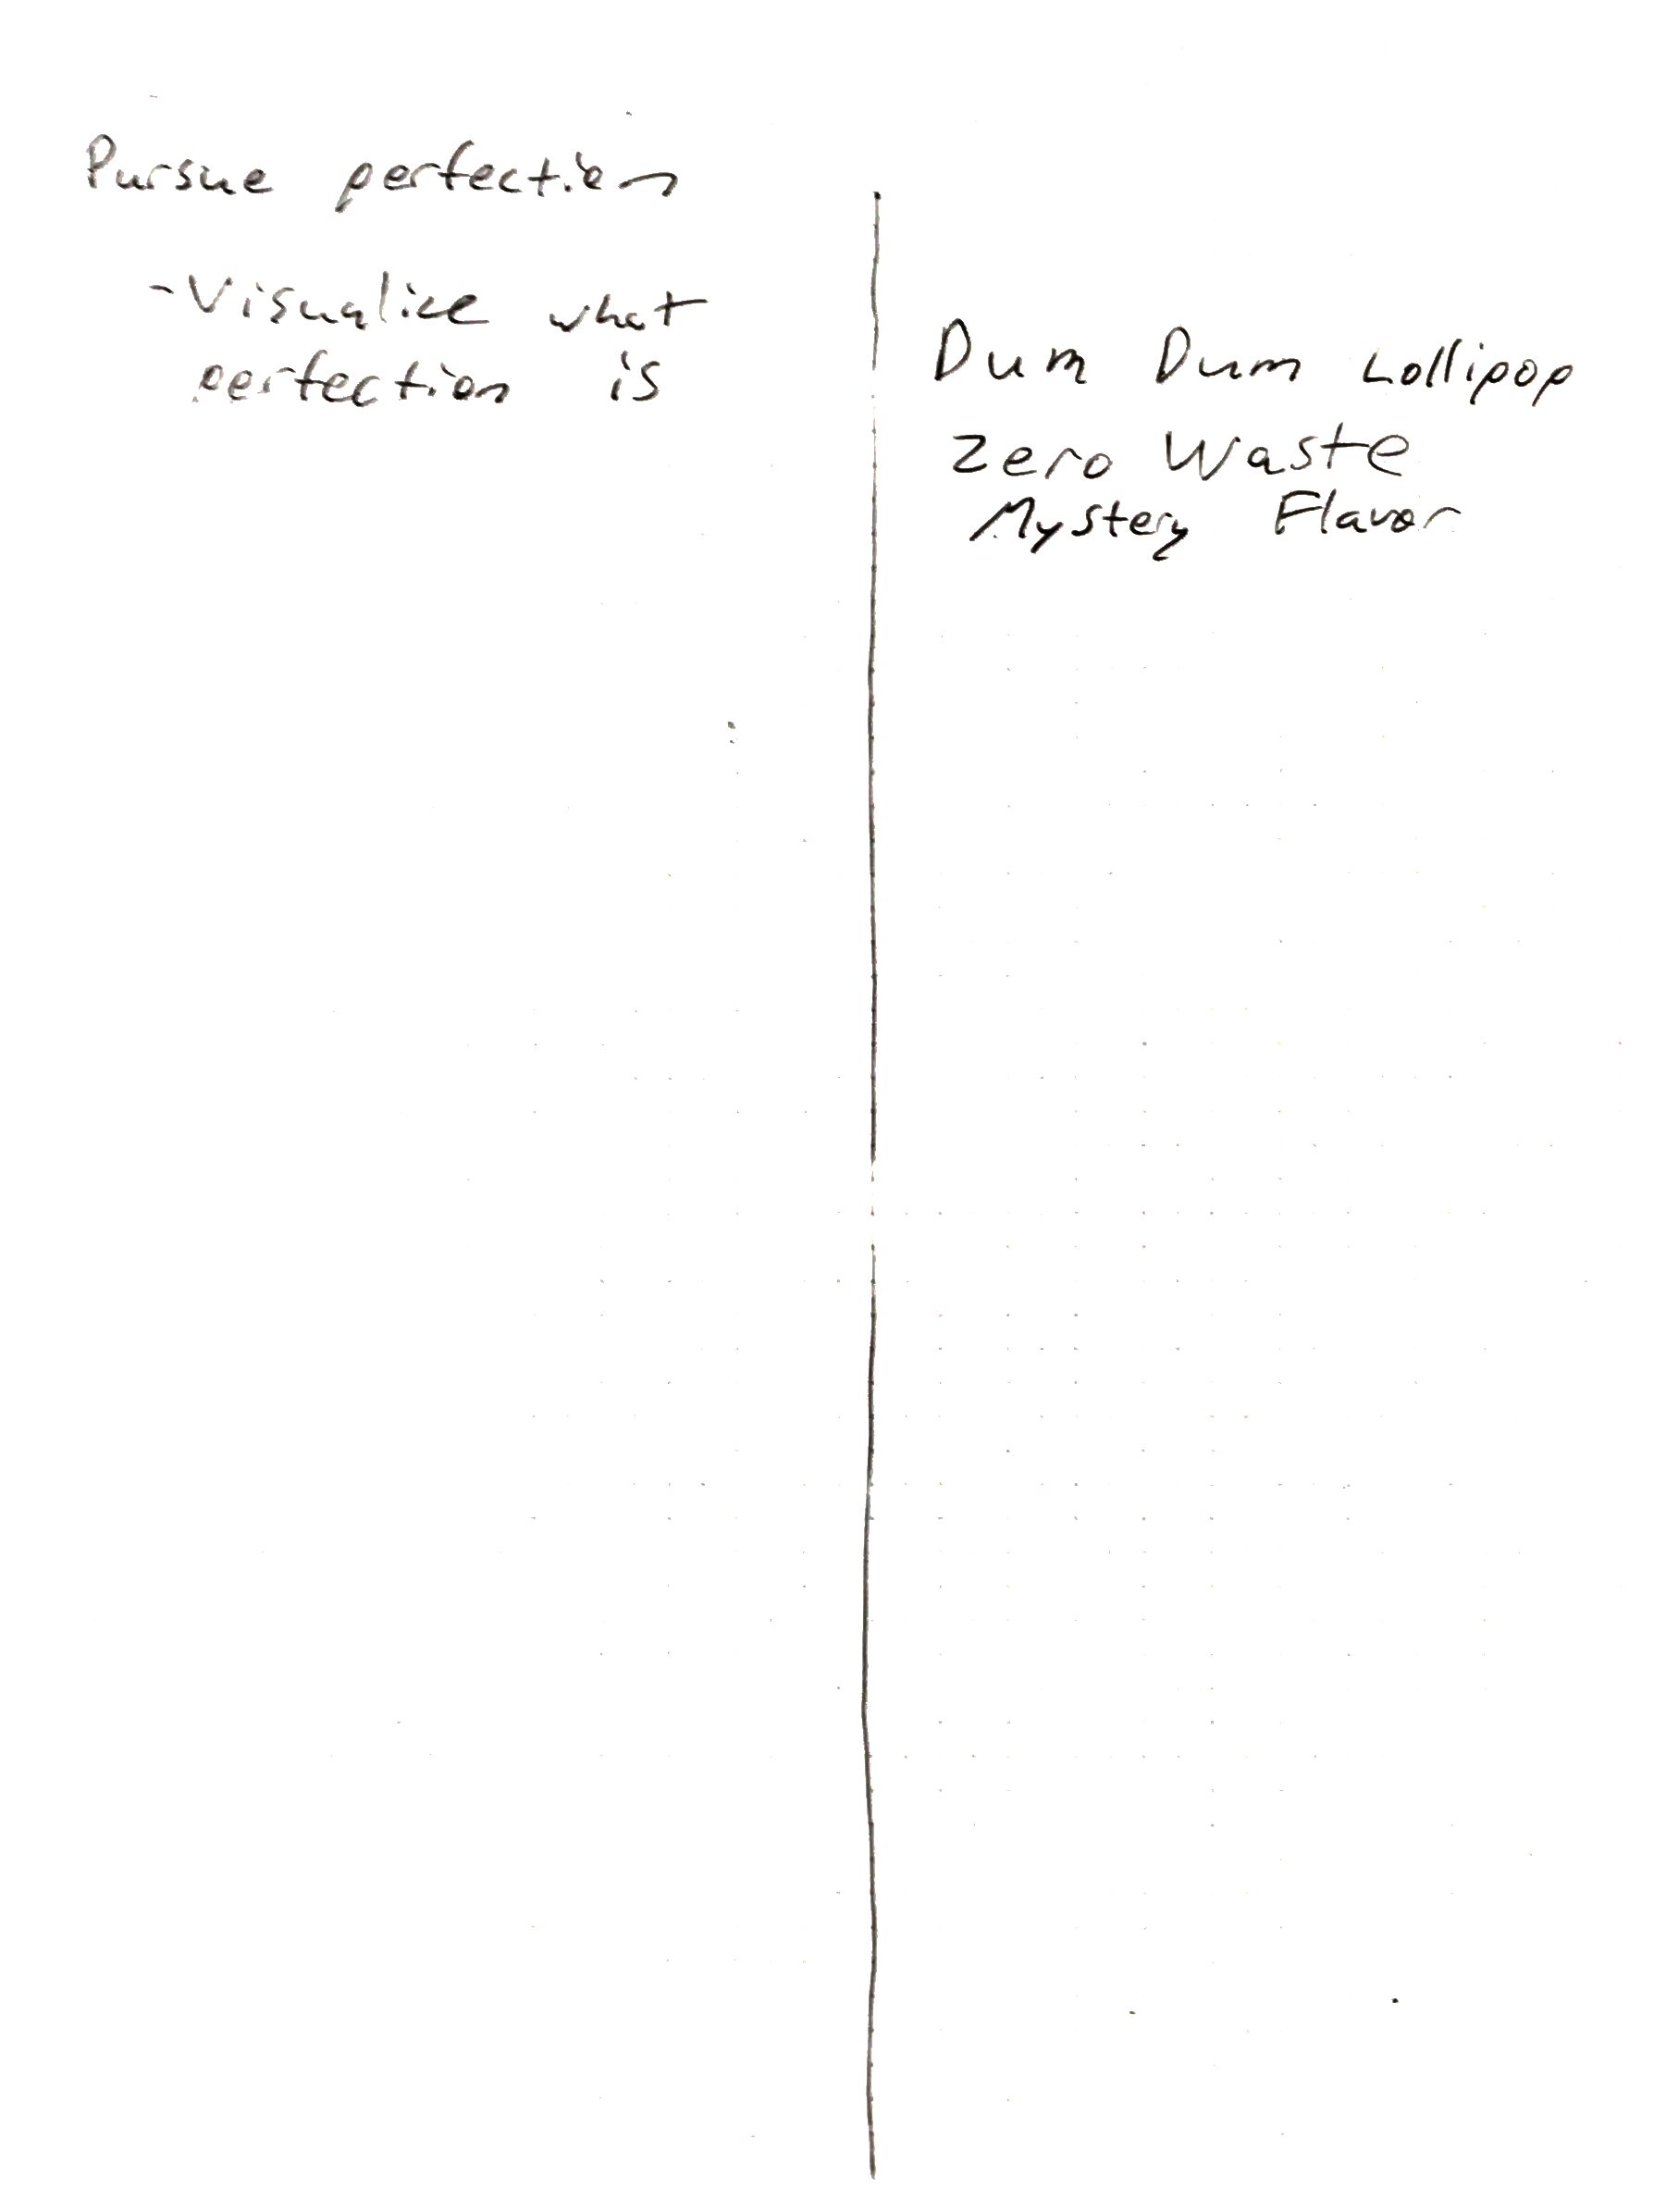 Pursue perfection
-Visualize what
perfection is
Dum Dum Lollipop
Zero Waste
Mystery Flavor